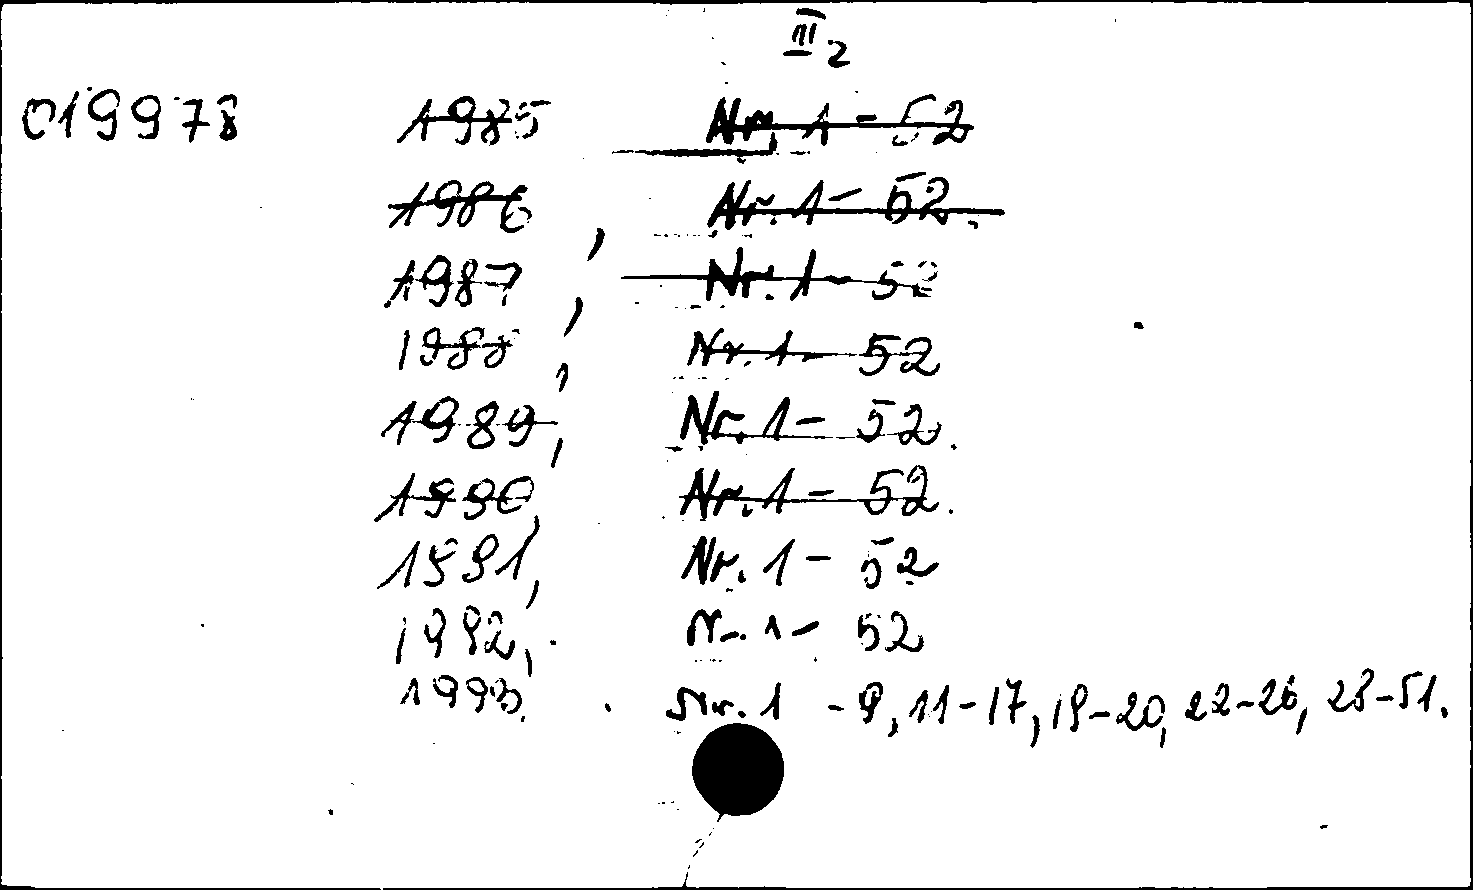 III 2
019978 1985 Nr. 1 - 52
1986, Nr. 1 - 52.
1987, Nr. 1 - 52
1988, Nr. 1 - 52
1989, Nr. 1 - 52.
1990, Nr. 1 - 52.
1991, Nr. 1 - 52
1992, Nr. 1 - 52
1993. Nr. 1 - 9, 11-17, 19-20, 22-26, 28-51.